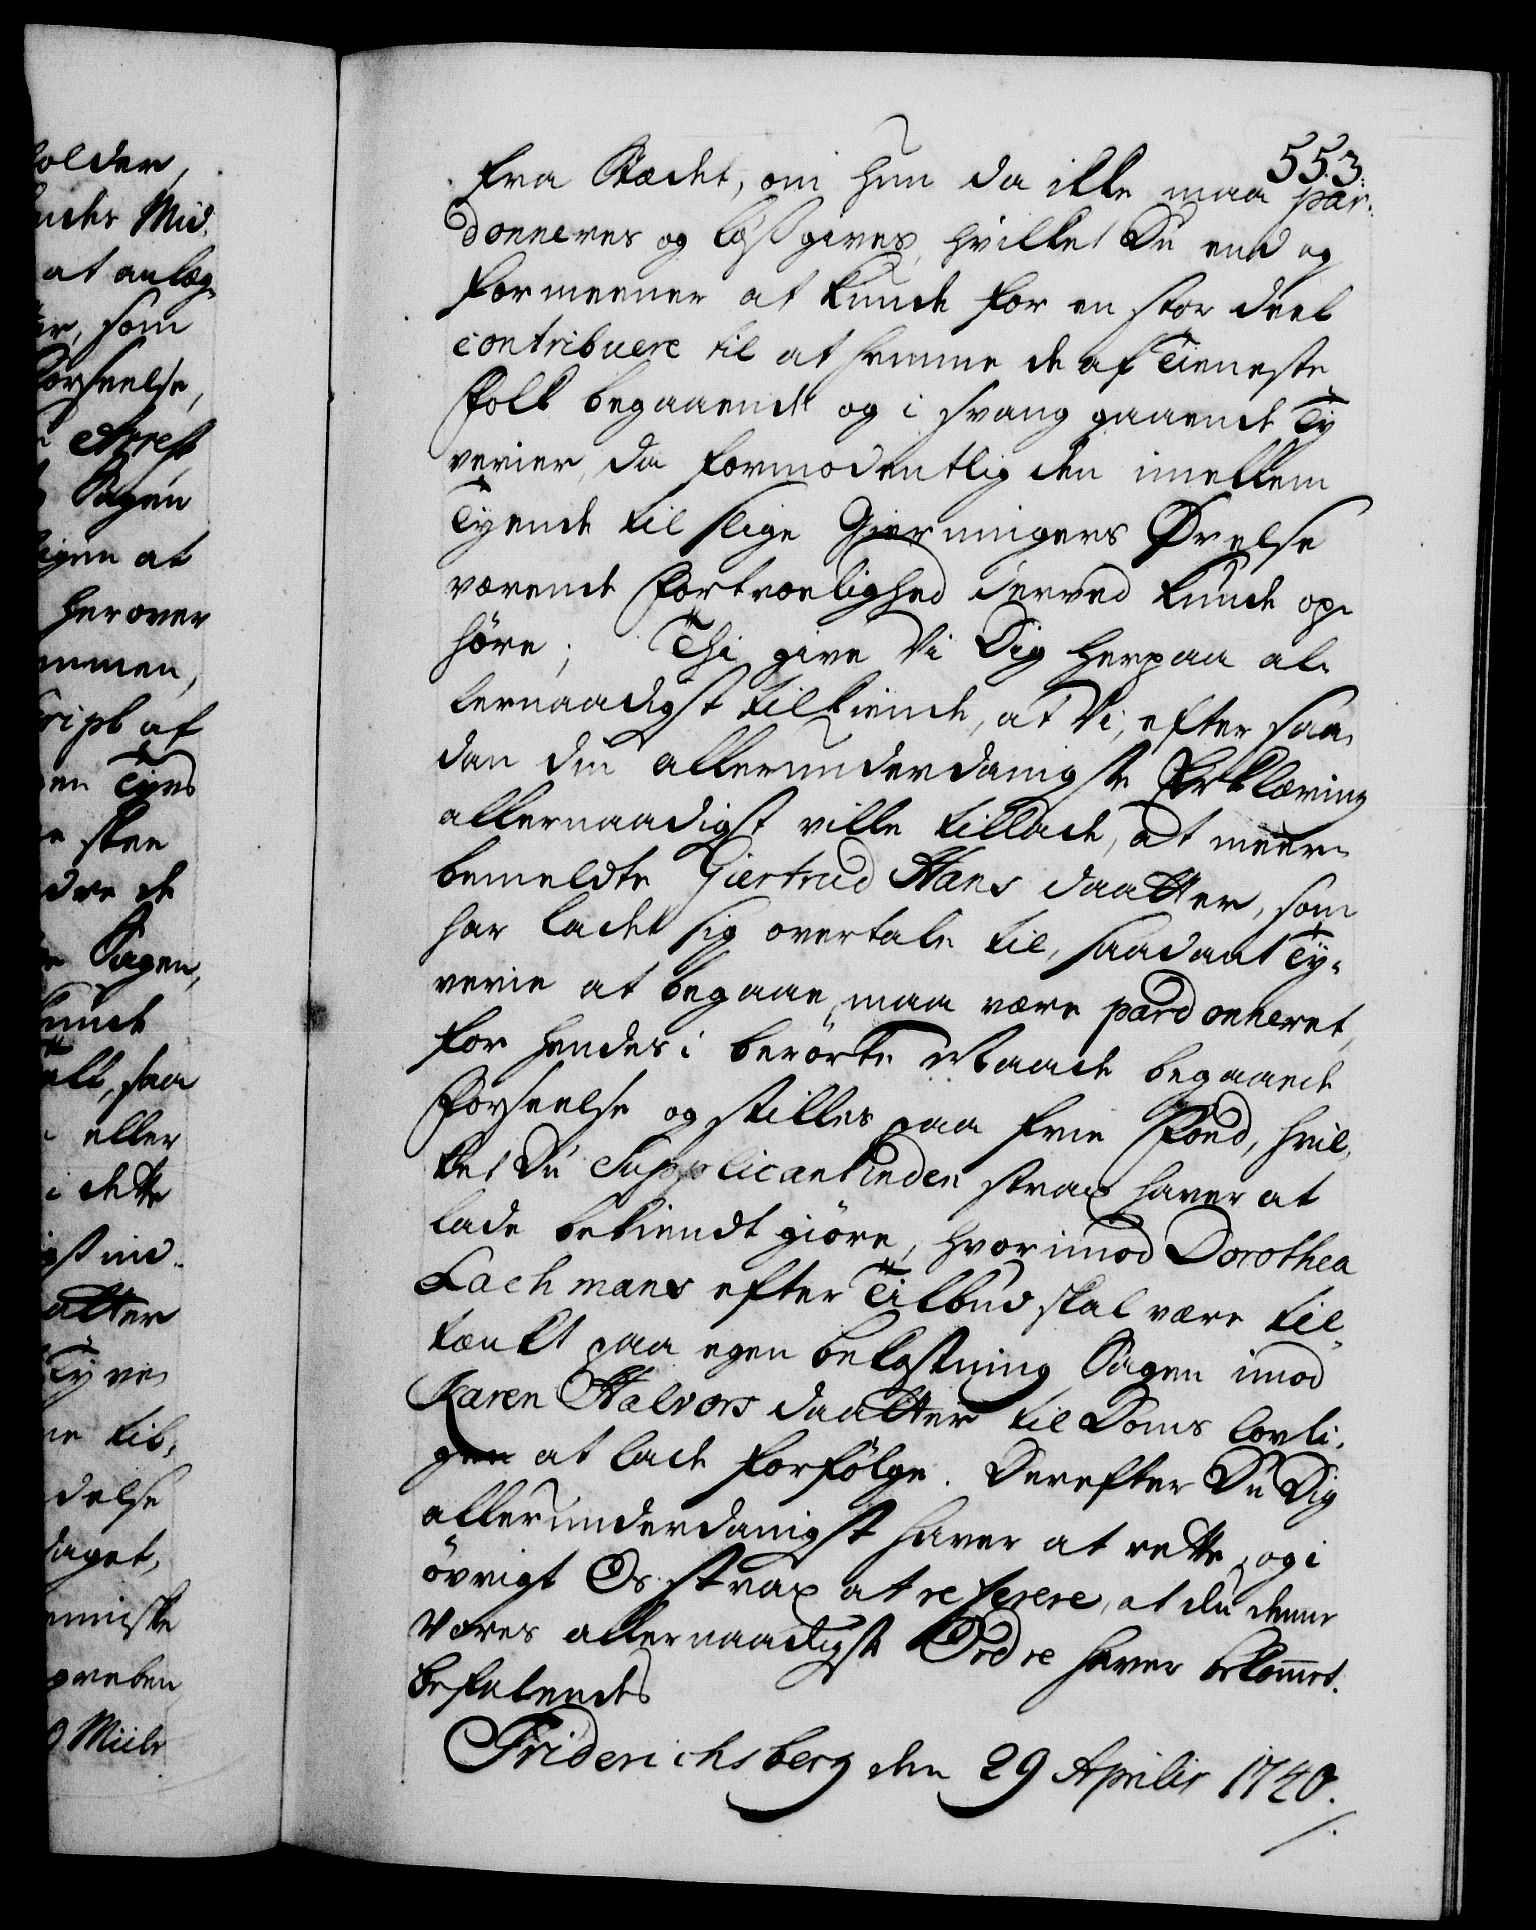 553.
fra Stædet, om hun da ikke maa par-
donneres og løsßgives, hvilket Du end og
formeener at kunde for en stor deel
contribuere til at hemme de af Tieneste
Folk begaaende og i svang gaaende Ty
verier, da formodentlig den imellem
Tyende til slige Gierningers Øvelse
værende Fortroelighed derved kunde op-
høre; Thi give Vi Dig herpaa al-
lernaadigst tilkiende, at Vi, efter saa-
dan din allerunderdanigste Erklæring
allernaadigst ville tillade, at meer-
bemeldte Giertrud Hans daatter, som
har ladet sig overtale til, saadant Ty-
verie at begaae, maa være pardonneret,
for hendes i berørte Maade begaaede
Forseelse og stilles paa frie Fod, hvil-
ket Du Supplicantinden strax haver at
lade bekiendt giøre, hvorimod Dorothea
Lachmans efter Tilbud skal være til-
tænkt paa egen bekostning Sagen imod
Karen Halvors daatter til Doms lovli-
gen at lade forfølge. Derefter Du Dig
allerunderdanigst haver at rette, og i
övrigt Os strax at referere, at du denne
Vores allernaadigste Ordre haver bekommet.
Befalendes
Friderichsberg den 29 Aprilis 1740.
/.
holder,
Mid-
at anlæg-
som
Forseelse,
Arrest
Sagen
at
herover
af
Tyvs
skee
de
Sagen,
kunde
saa
eller
i dette
Tyve
til-